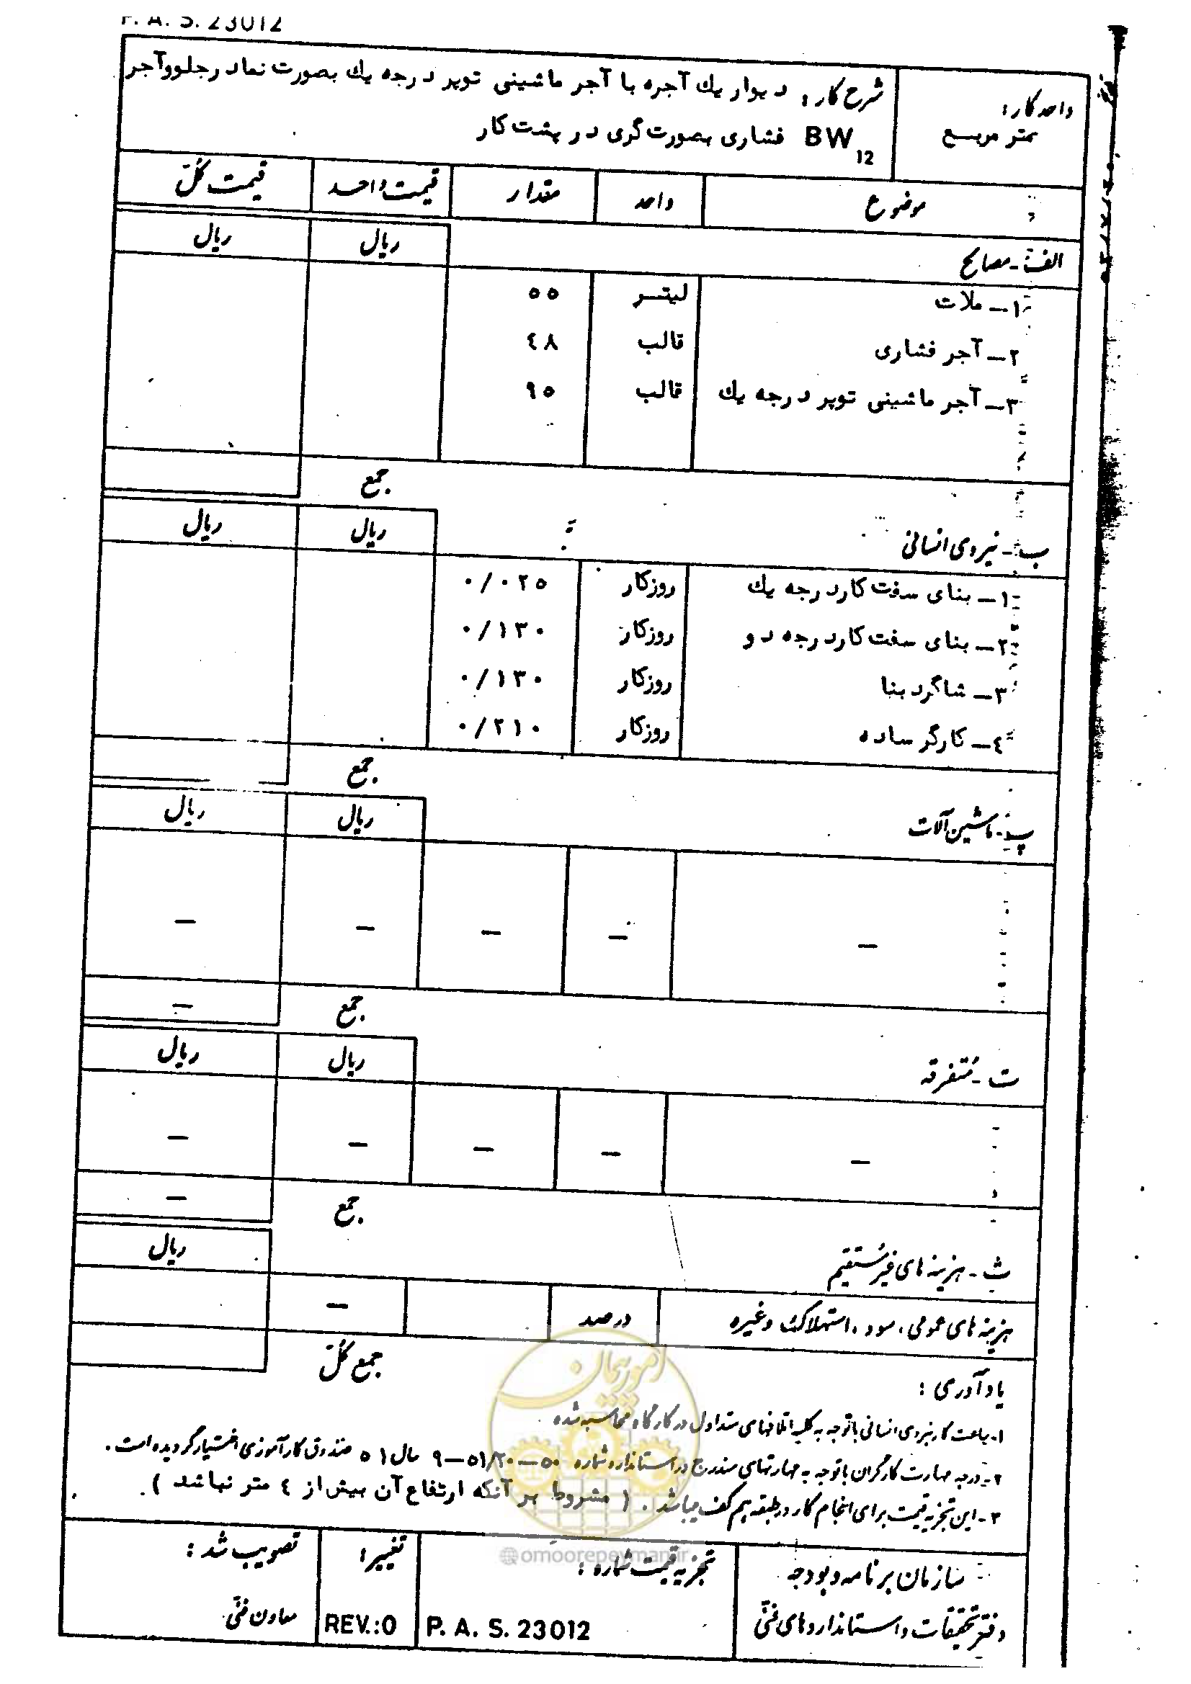 P. A. S. 23012
واحد کار :
متر مربع
شرح کار : دیوار یك آجره با آجر ماشینی توپر درجه یك بصورت نماد رجلووآجر
فشاری بصورت گری در پشت کار BW12
موضوع واحد مقدار قیمت واحد قیمت کلّ
الف - مصالح ریال ریال
۱- ملات لیتر ۵۵
۲- آجر فشاری قالب ٤۸
۳- آجر ماشینی توپر درجه یك قالب ۹۵
جمع
ب - نیروی انسانی ریال ریال
۱- بنای سفت کار درجه یك روزکار ۰/۰۲۵
۲- بنای سفت کار درجه دو روزکار ۰/۱۳۰
۳- شاگرد بنا روزکار ۰/۱۳۰
٤- کارگر ساده روزکار ۰/۲۱۰
جمع
پ - ماشین آلات ریال ریال
— — — — —
جمع —
ت - مُتفرقه ریال ریال
— — — — —
جمع —
ث - هزینه های غیر مُستقیم ریال
هزینه های عمومی ، سود ، استهلاک وغیره درصد —
جمع کُلّ
یادآوری :
۱- ساعت کار نیروی انسانی باتوجه به کلیه اتلافهای متداول در کارگاه محاسبه شده
۲- درجه مهارت کارگران باتوجه به مهارتهای مندرج در استاندارد شماره ۵۰-۵۱/۲۰-۹ سال ۵۱ صندوق کارآموزی اختیار گردیده است .
۳- این تجزیه قیمت برای انجام کار در طبقه هم کف میباشد . ( مشروط بر آنکه ارتفاع آن بیش از ٤ متر نباشد ) .
امور پیمان
@omoorepeyman.ir
سازمان برنامه و بودجه
دفتر تحقیقات و استانداردهای فنّی
تجزیه قیمت شماره :
P. A. S. 23012
تغییر :
REV.:0
تصویب شد :
معاون فنّی